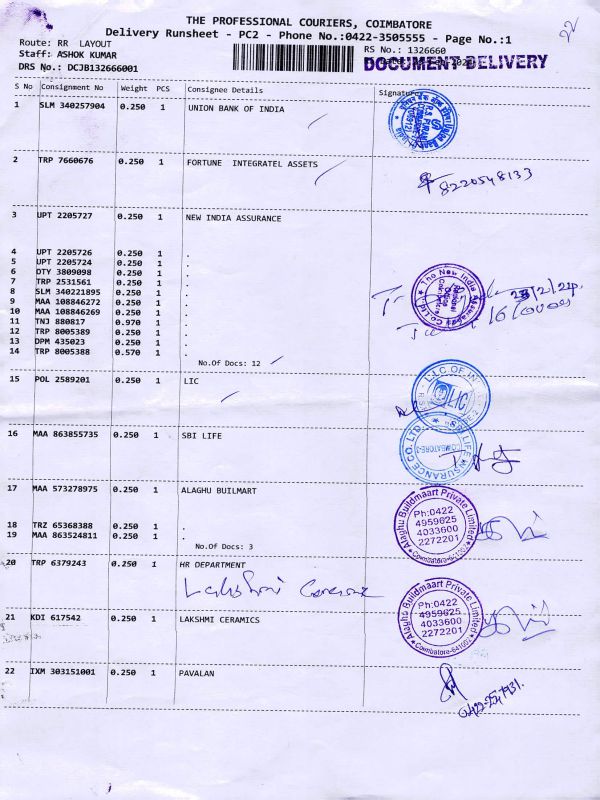 THE PROFESSIONAL COURIERS, COIMBATORE
Delivery Runsheet - PC2 - Phone No.:0422-3505555 - Page No.:1
22
Route: RR LAYOUT
Staff: ASHOK KUMAR
DRS No.: DCJB132666001
RS No.: 1326660
DOCUMENT DELIVERY
S No Consignment No Weight PCS Consignee Details Signature
1 SLM 340257904 0.250 1 UNION BANK OF INDIA
2 TRP 7660676 0.250 1 FORTUNE INTEGRATEL ASSETS
8220548133
3 UPT 2205727 0.250 1 NEW INDIA ASSURANCE
4 UPT 2205726 0.250 1 .
5 UPT 2205724 0.250 1 .
6 OTY 3809098 0.250 1 .
7 TRP 2531561 0.250 1 .
8 SLM 340221895 0.250 1 .
9 MAA 108846272 0.250 1 .
10 MAA 108846269 0.250 1 .
11 TNJ 880817 0.970 1 .
12 TRP 8005389 0.250 1 .
13 DPM 435023 0.250 1 .
14 TRP 8005388 0.570 1 .
The New India Assurance Co. Ltd
No.Of Docs: 12
15 POL 2589201 0.250 1 LIC
L.I.C OF
LIC
16 MAA 863855735 0.250 1 SBI LIFE
SBI LIFE INSURANCE CO. LTD
COIMBATORE-2
17 MAA 573278975 0.250 1 ALAGHU BUILMART
18 TRZ 65368388 0.250 1 .
19 MAA 863524811 0.250 1 .
No.Of Docs: 3
Alaghu Buildmaart Private Limited
Ph:0422
4959625
4033600
2272201
Coimbatore-641002
20 TRP 6379243 0.250 1 HR DEPARTMENT
Lakshmi Ceramic
21 KDI 617542 0.250 1 LAKSHMI CERAMICS
Alaghu Buildmaart Private Limited
Ph:0422
4959625
4033600
2272201
Coimbatore-641002
22 IXM 303151001 0.250 1 PAVALAN